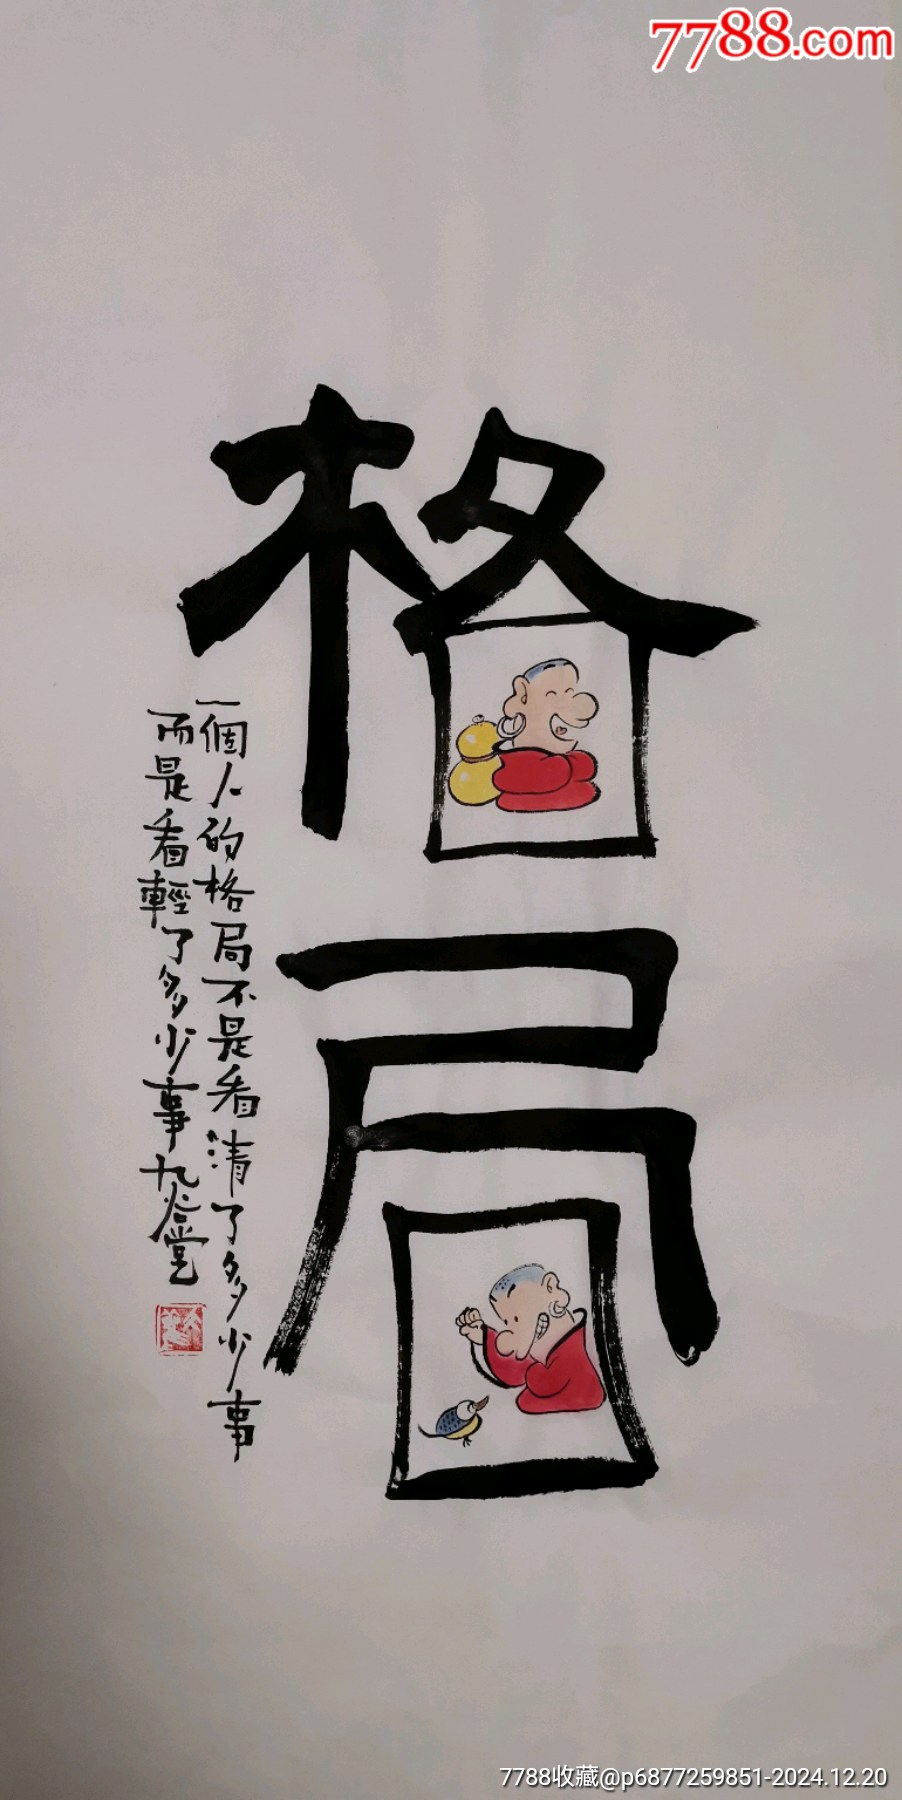 7788.com
格局
一個人的格局不是看清了多少事
而是看輕了多少事 九
7788收藏@p6877259851-2024.12.20